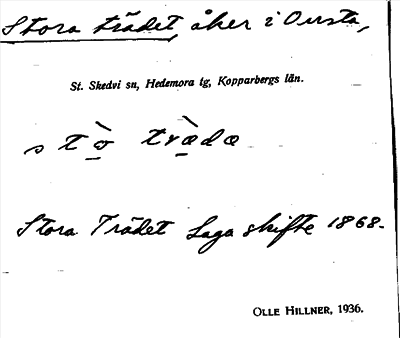 Stora trädet, åker i Onsta,
St. Skedvi sn, Hedemora tg, Kopparbergs län.
Stora Trädet Laga skifte 1868.
OLLE HILLNER, 1936.